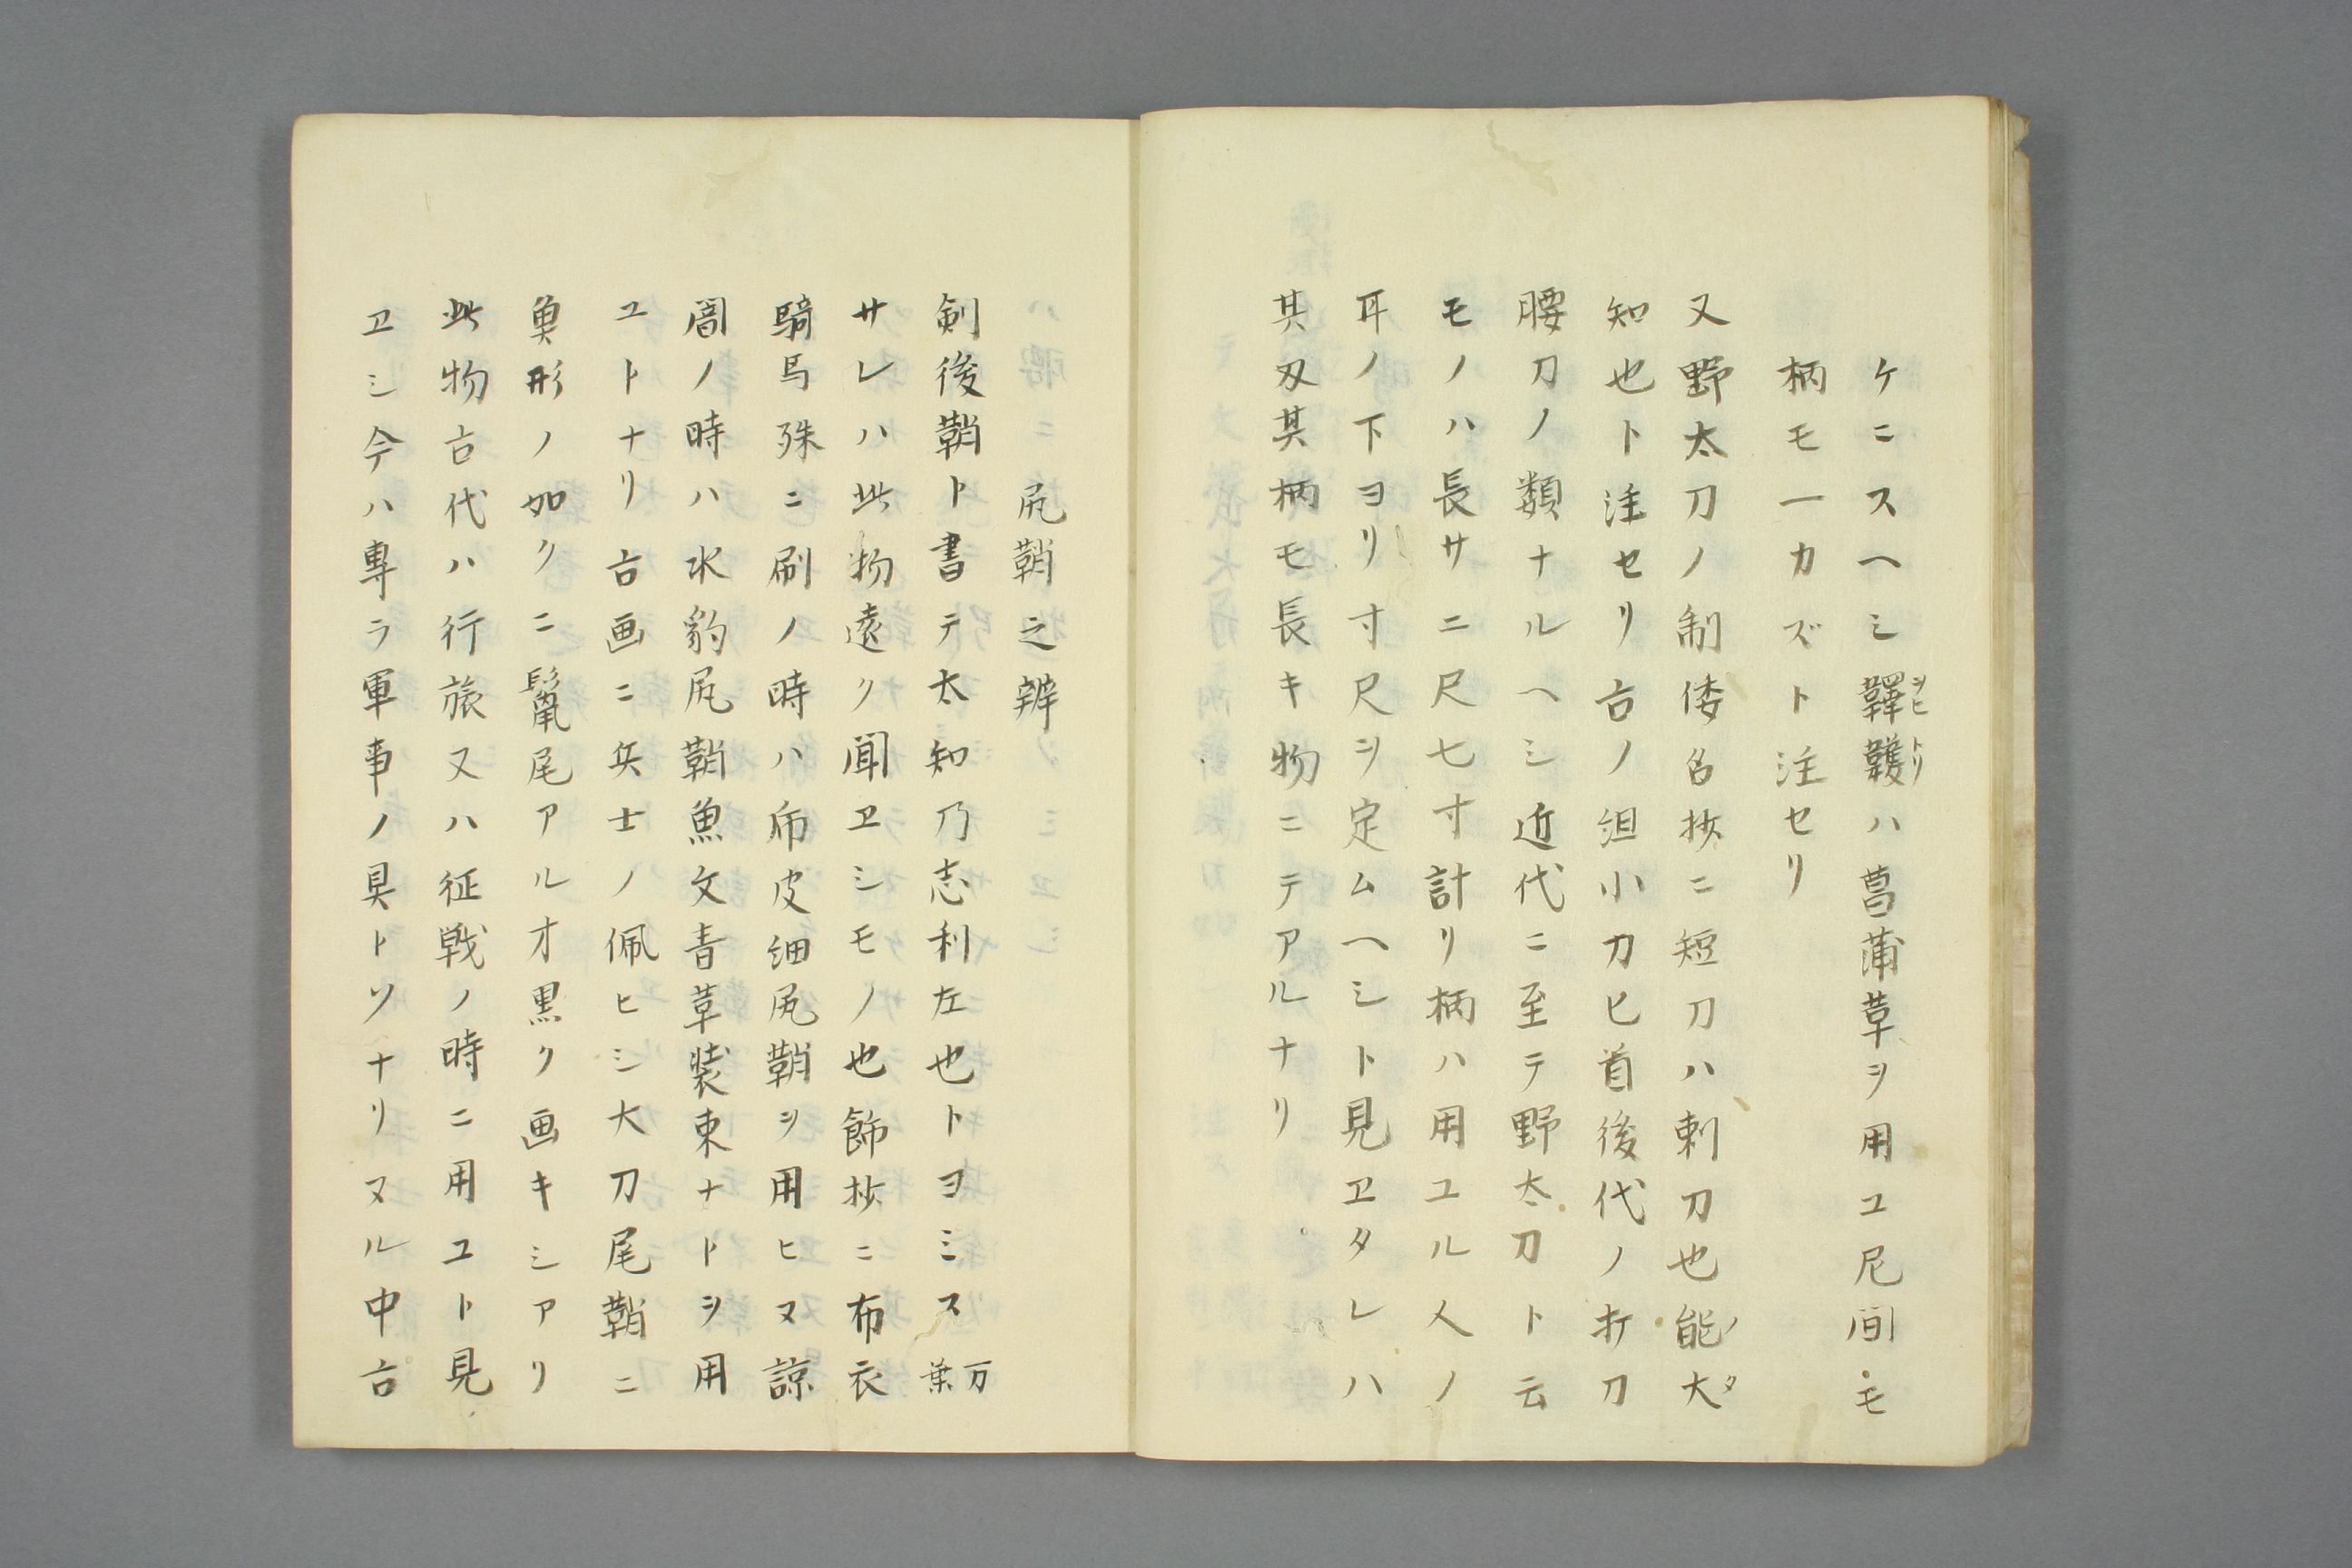 ケニスヘシ韄韄ハ菖蒲草ヲ用ユ尼間モ
ヲヒトリ
柄モ一カズト注セリ
又野太刀ノ制倭名抄ニ短刀ハ刺刀也能大
ノタ
知也ト注セリ古ノ俎小刀匕首後代ノ打刀
腰刀ノ類ナルヘシ近代ニ至テ野太刀ト云
モノハ長サニ尺七寸計リ柄ハ用ユル人ノ
耳ノ下ヨリ寸尺ヲ定ムヘシト見ヱタレハ
其刄其柄モ長キ物ニテアルナリ
尻鞘之辨
剣後鞘ト書テ太知乃志利左也トヨミス万葉
サレハ此物遠ク聞ヱシモノ也飾抄ニ布衣
騎馬殊ニ刷ノ時ハ帍皮細尻鞘ヲ用ヒヌ諒
闇ノ時ハ水豹尻鞘魚文青草装束ナトヲ用
ユトナリ古画ニ兵士ノ佩ヒシ大刀尾鞘ニ
奠形ノ如クニ鬣尾アルオ黒ク画キシアリ
此物古代ハ行旅又ハ征戦ノ時ニ用ユト見
ヱシ今ハ専ラ軍事ノ具トソナリヌル中古